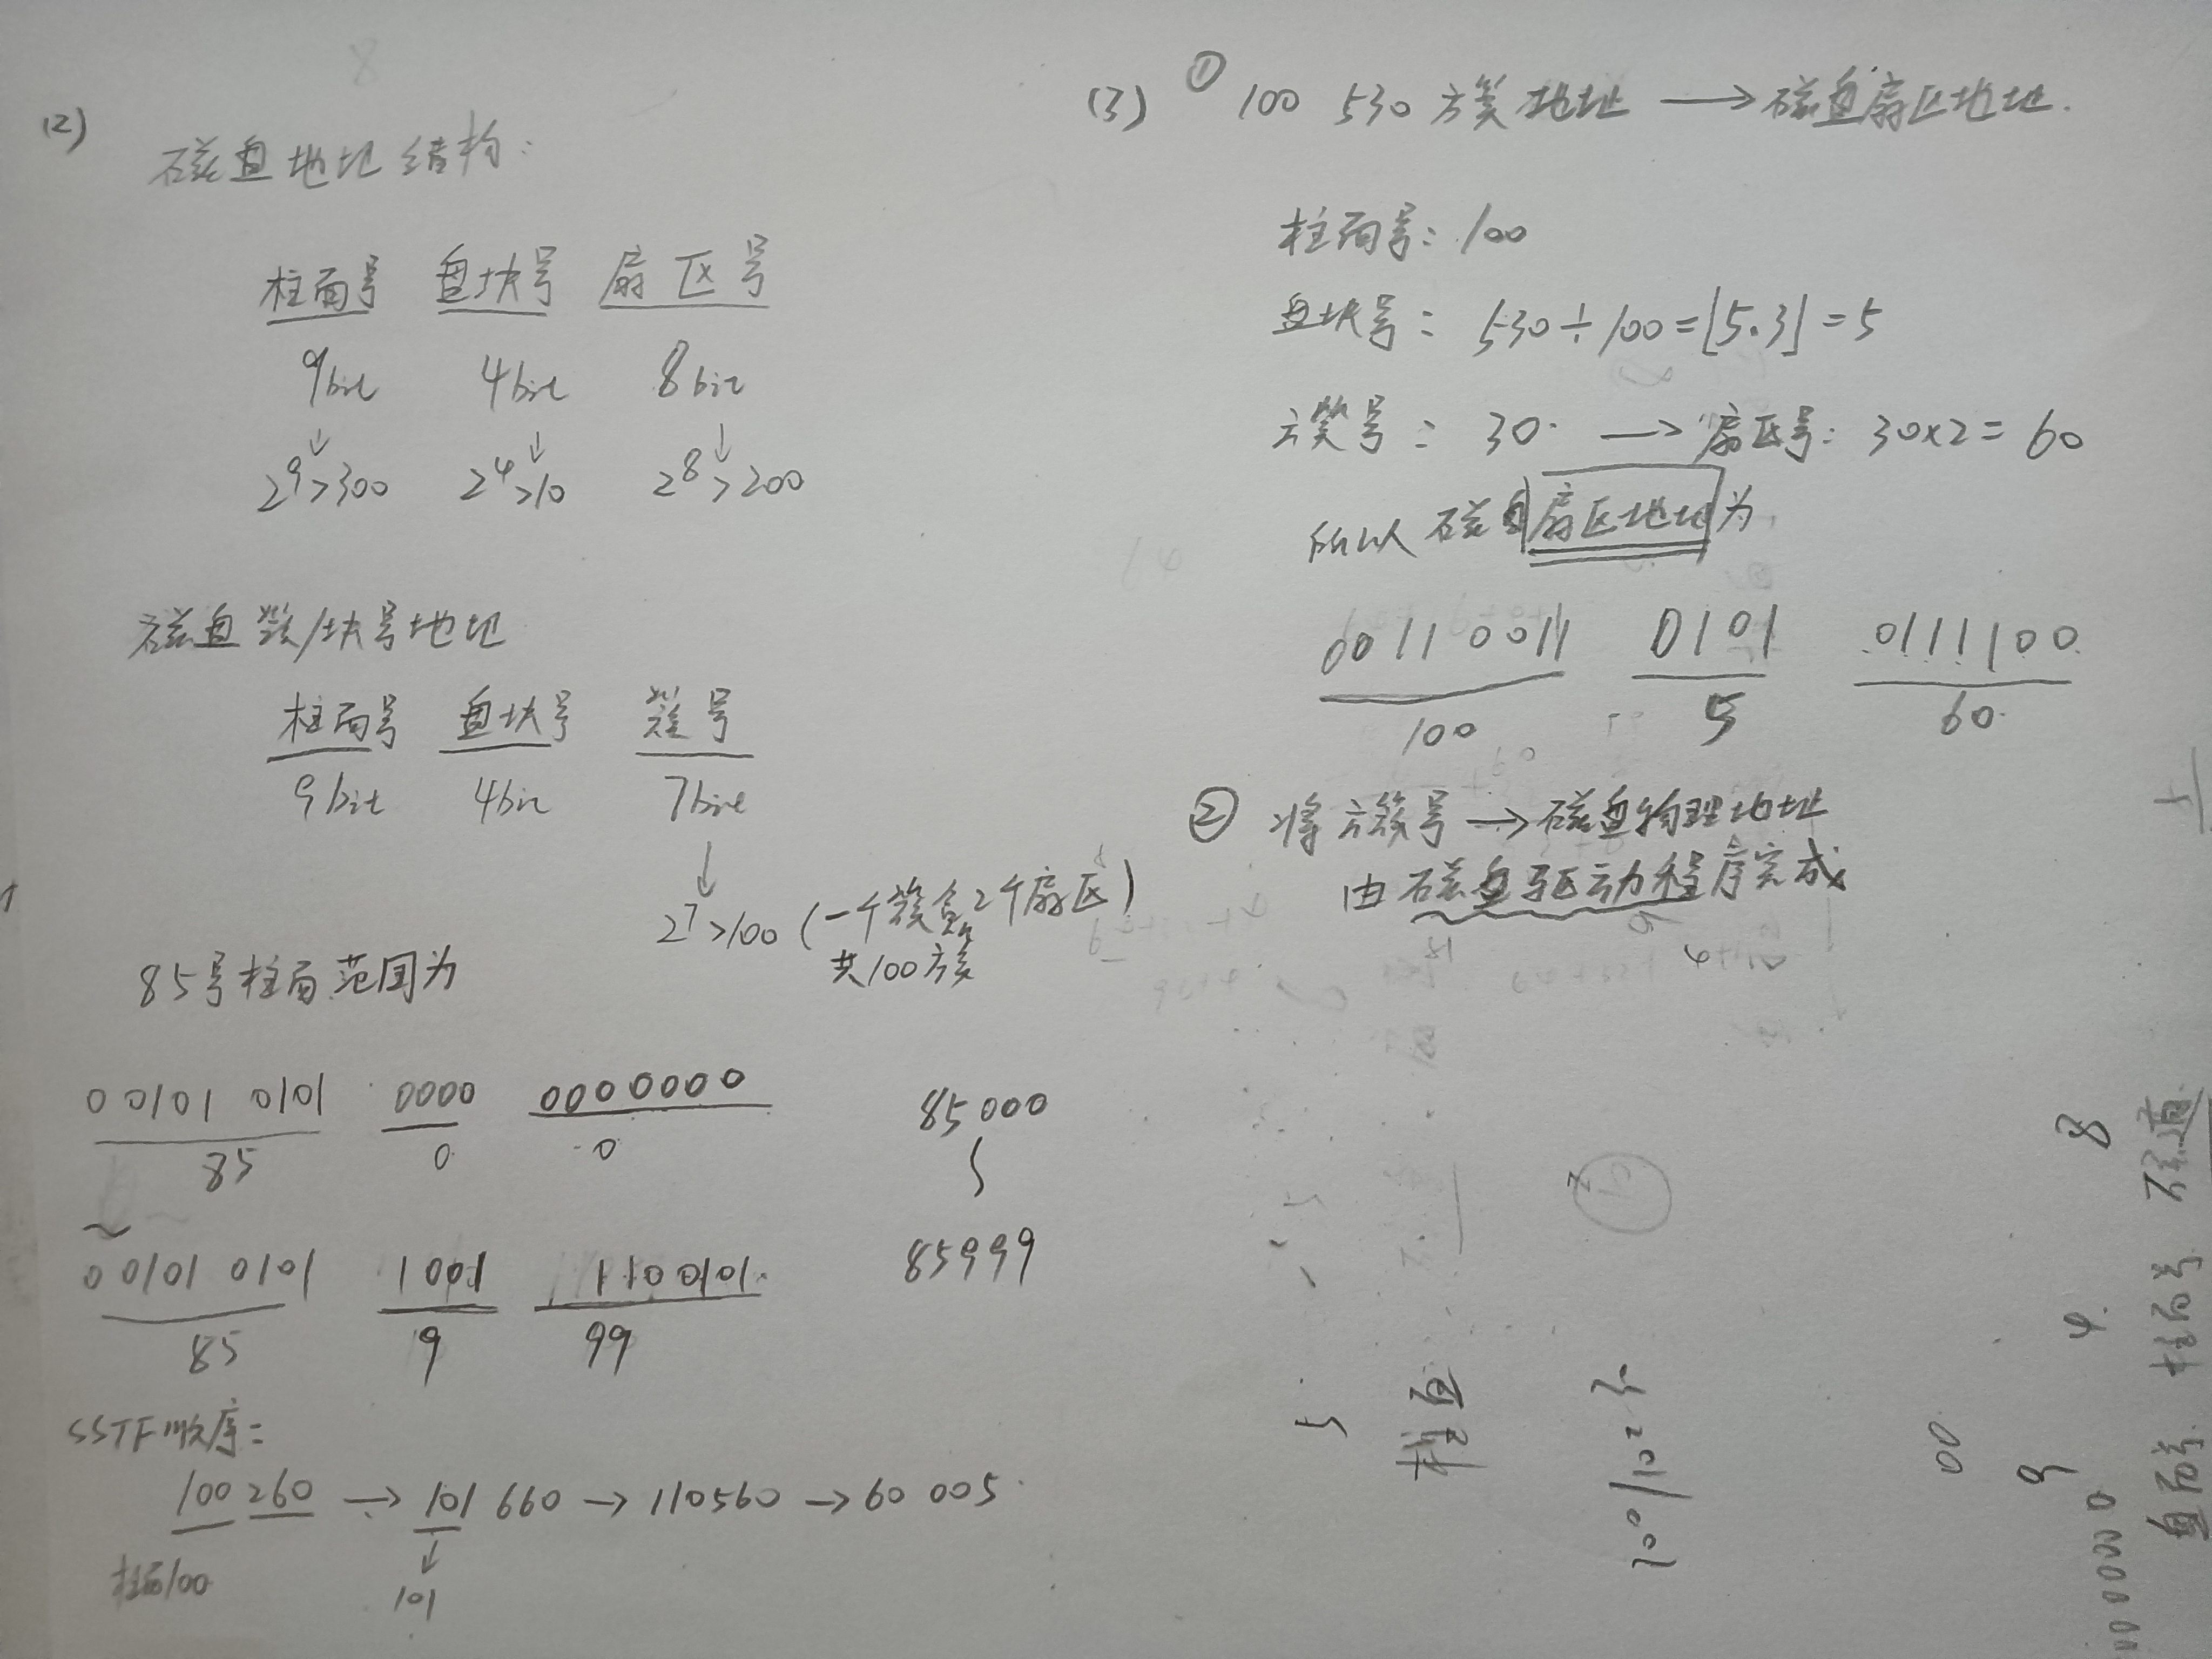 (2)
磁盘地址结构:
柱面号 盘块号 扇区号
9bit 4bit 8bit
2⁹>300 2⁴>10 2⁸>200
磁盘簇/块号地址
柱面号 盘块号 簇号
9bit 4bit 7bit
2⁷>100 (一个簇含2个扇区)
共100簇
85号柱面范围为
00101 0101 0000 0000000 85000
85 0 0
00101 0101 1001 1100101 85999
85 9 99
SSTF顺序:
100260 → 101 660 → 110560 → 60 005
柱面100 101
(3) ① 100 530 簇地址 → 磁盘扇区地址.
柱面号: 100
盘块号: 530÷100=⌊5.3⌋=5
簇号: 30 → 扇区号: 30×2=60
所以磁盘扇区地址为
00110 0011 0101 0111100
100 5 60
② 将簇号→磁盘物理地址
由磁盘驱动程序完成
8
4
9
00
盘面号 柱面号 磁道